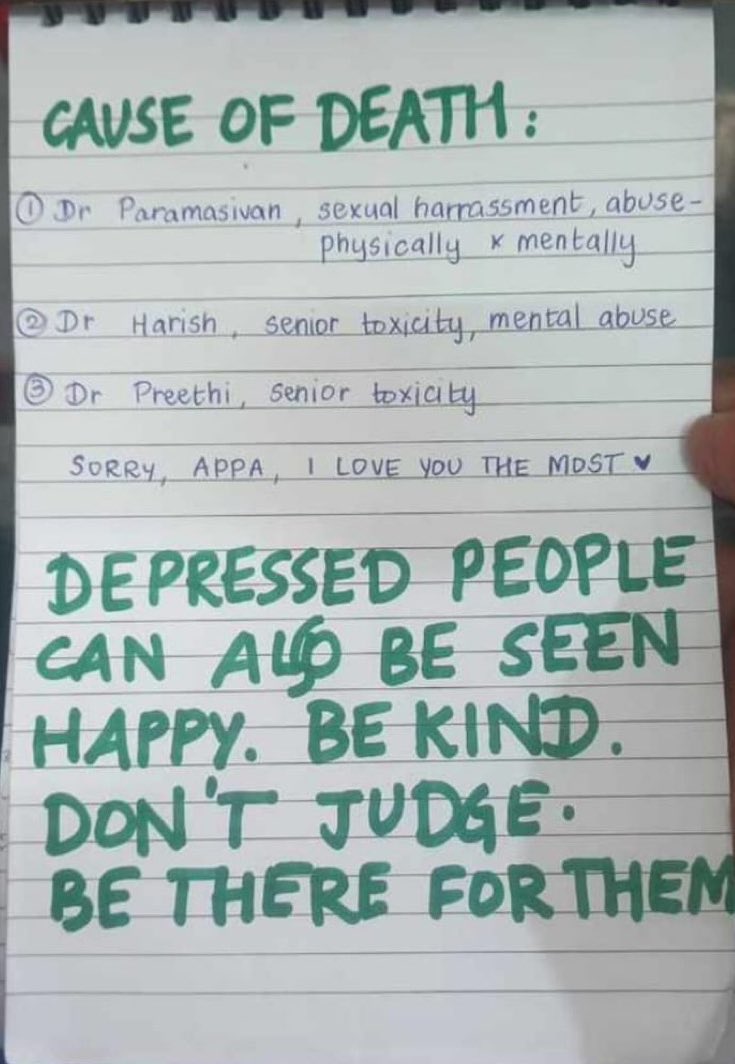 CAUSE OF DEATH:
① Dr Paramasivan, sexual harrassment, abuse-
physically x mentally
② Dr Harish, senior toxicity, mental abuse
③ Dr Preethi, senior toxicity
SORRY, APPA, I LOVE YOU THE MOST ♥
DEPRESSED PEOPLE
CAN ALSO BE SEEN
HAPPY. BE KIND.
DON'T JUDGE.
BE THERE FOR THEM